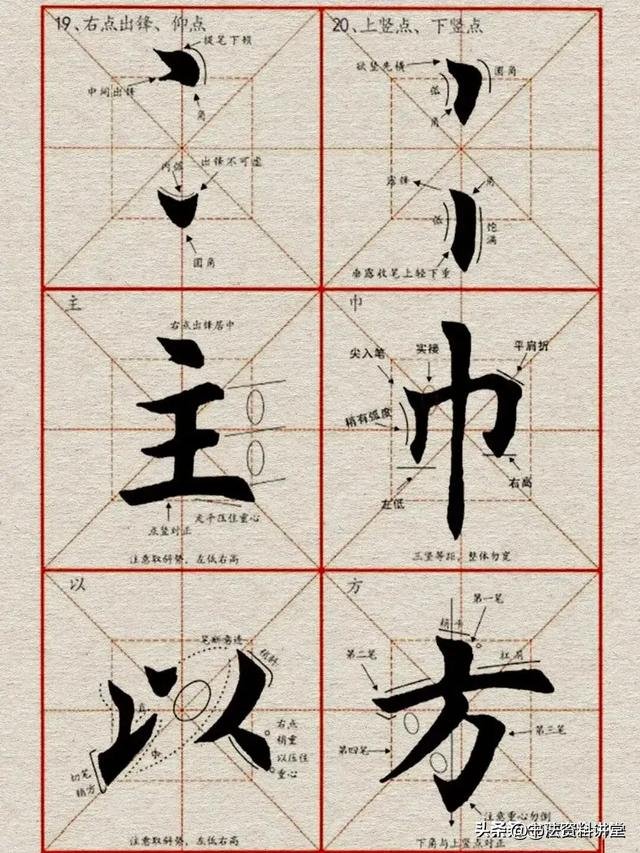 19、右点出锋、仰点
提笔下顿
中间出锋
角
内弧
出锋不可虚
圆角
20、上竖点、下竖点
欲竖先横
圆角
低
角
露锋
角
低
饱满
垂露收笔上轻下重
主
右点出锋居中
点竖对正
注意取斜势，左低右高
巾
尖入笔
实接
平肩折
稍有弧度
左低
右高
三竖等距，整体勿宽
以
笔断意连
稍斜
切笔
稍方
右点
稍重
以压住
重心
注意取斜势，左低右高
方
第一笔
第二笔
扛肩
第三笔
第四笔
注意重心勿倒
下角与上竖点对正
头条@书法资料讲堂